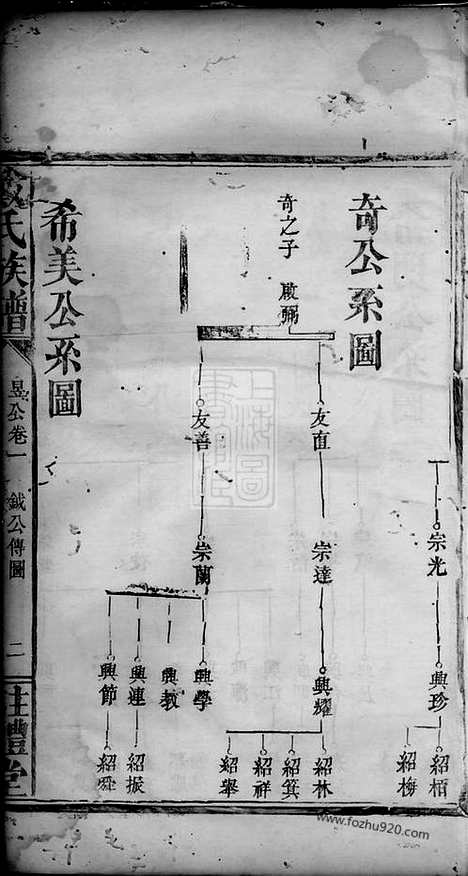 宗光
興珍
紹栢
紹梅
奇公系圖
奇之子
啟弼
友直
宗達
興耀
紹林
紹箕
紹祥
紹舉
友善
崇蘭
興學
興教
興連
紹振
興節
紹舜
希美公系圖
氏族譜
昱公卷一
鉞公傳圖
二
上海圖
www.fozhu920.com